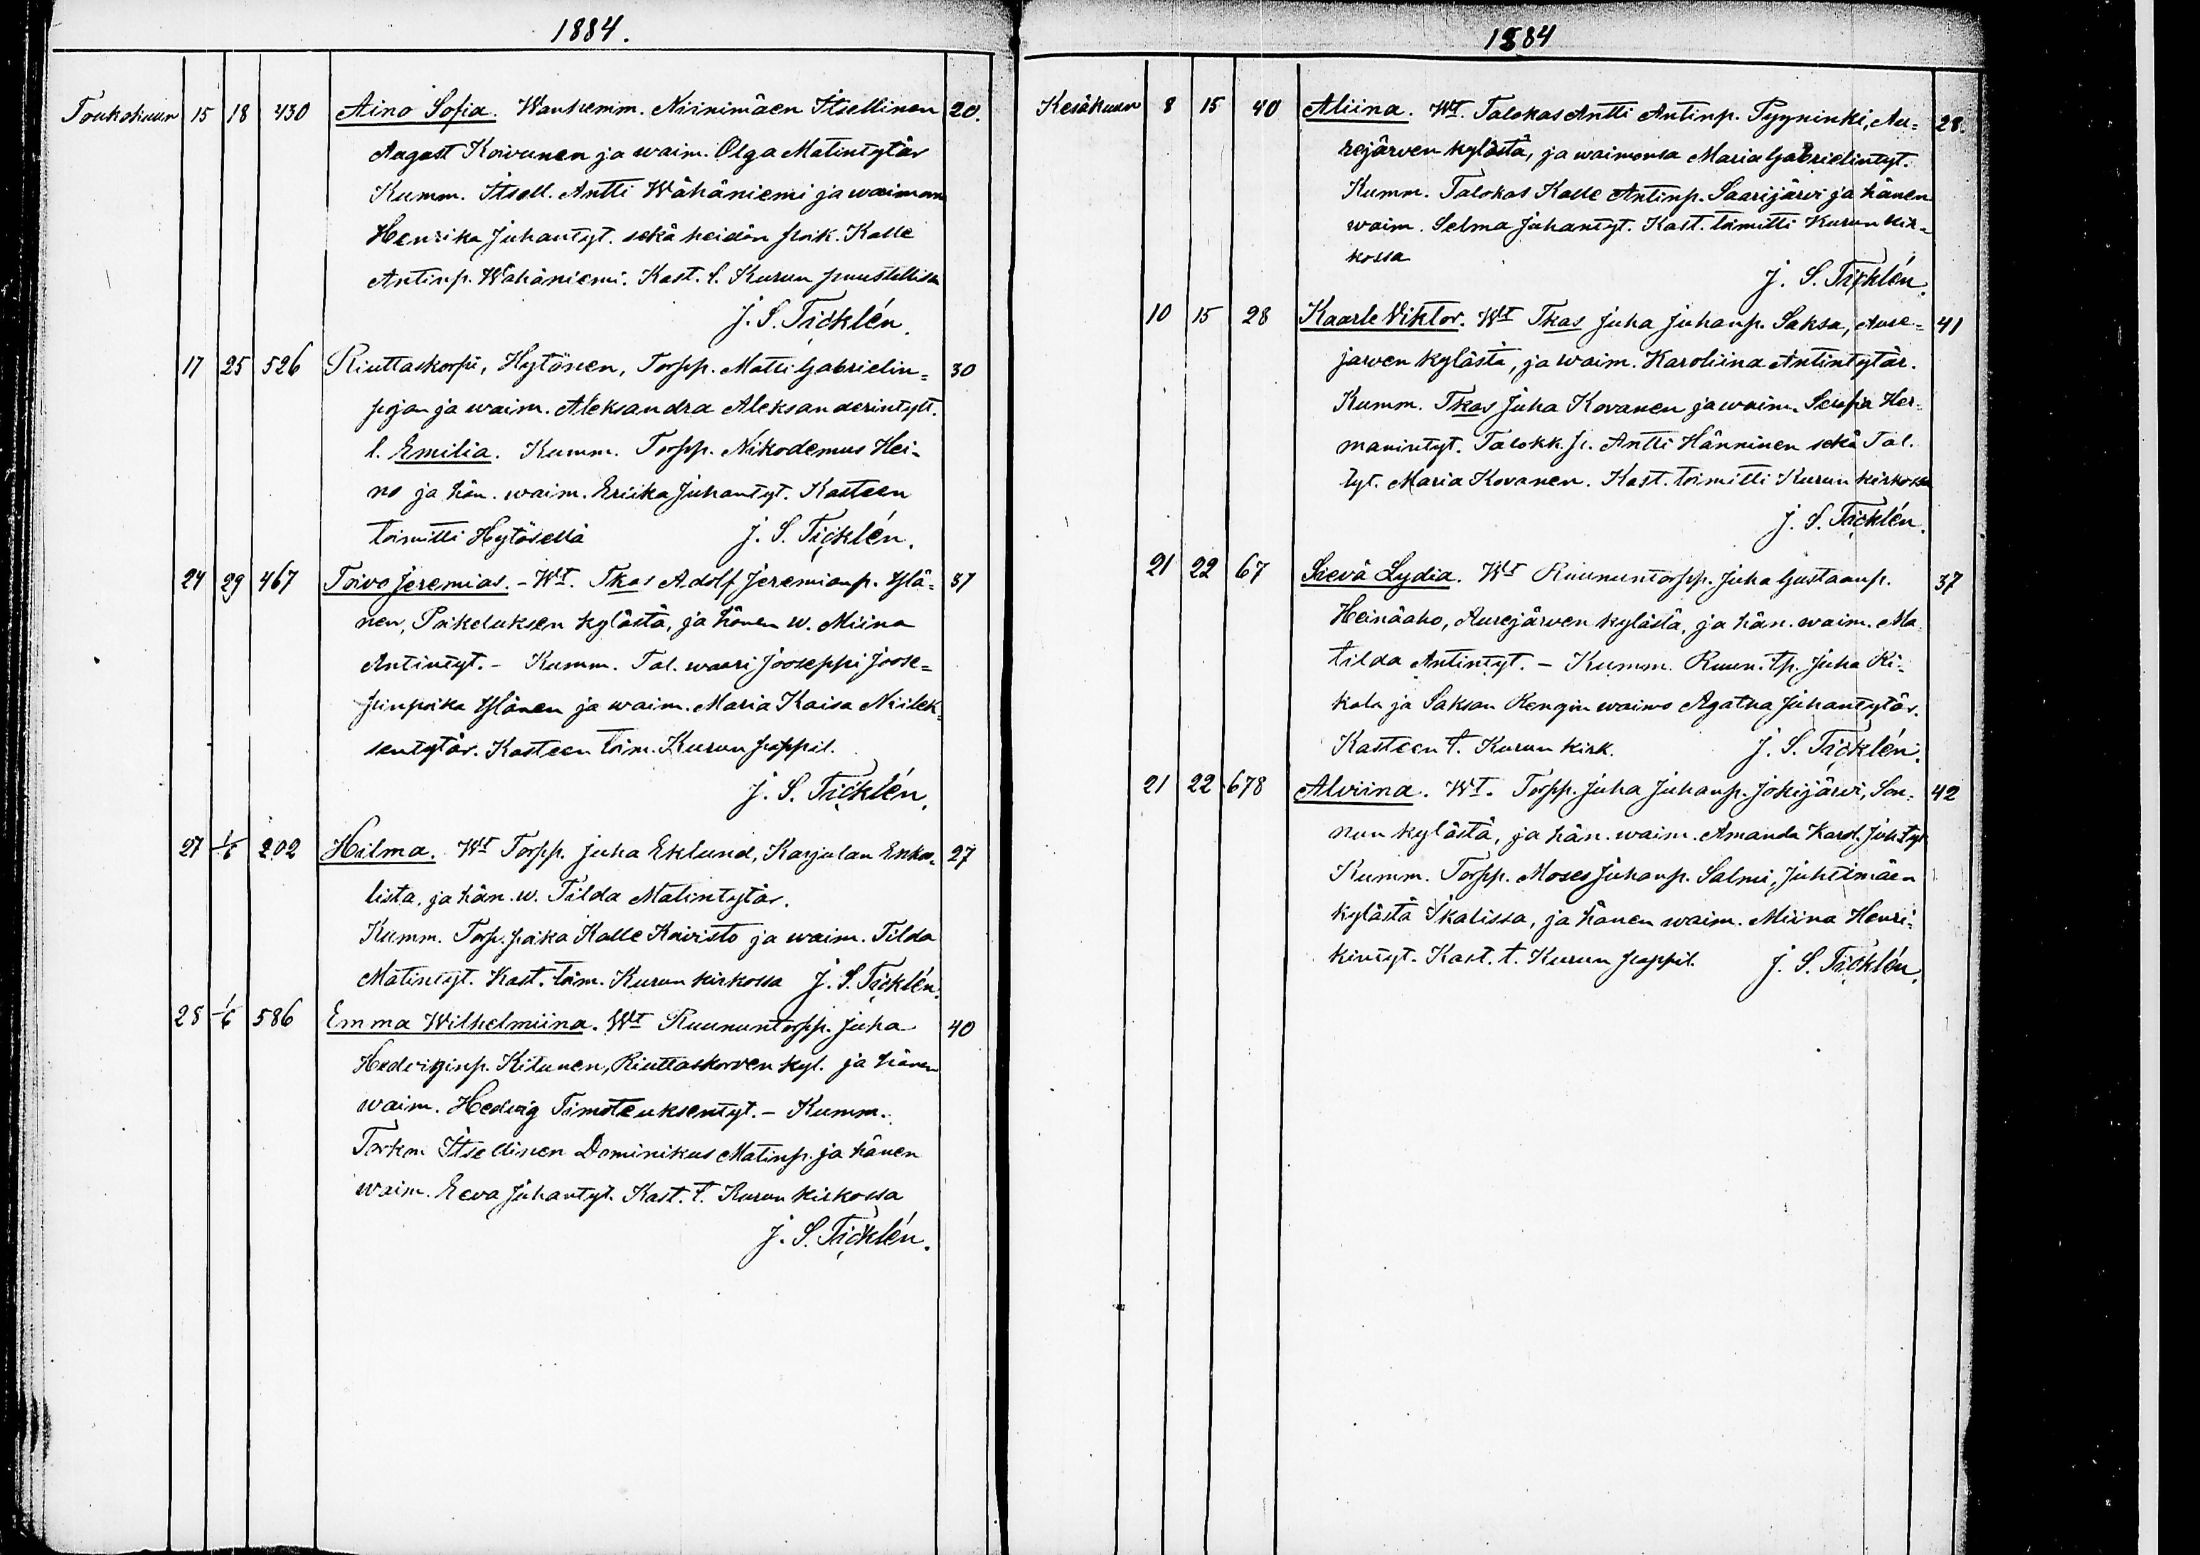 1884.
Toukokuun 15 18 430 Aino Sofia. Wanhemm. Niinimäen Itsellinen 20.
August Koivunen ja waim. Olga Matintytär
Kumm. Itsell. Antti Wähäniemi ja waimon
Henrika Juhantyt. sekä heidän poik. Kalle
Antinp. Wähäniemi. Kast. t. Kurun puustellissa
J. S. Ticklén.
17 25 526 Riuttaskorpi, Hytönen, Torpp. Matti Gabrielin= 30
pojan ja waim. Aleksandra Aleksanderintytt.
l. Emilia. Kumm. Torpp. Nikodemus Hei-
no ja hän. waim. Eriika Juhantyt. Kasteen
toimitti Hytösellä J. S. Ticklén.
24 29 467 Toivo Jeremias. - Wt. Tkas Adolf Jeremianp. Ylä- 37
nen, Poikeluksen kylästä, ja hänen w. Miina
Antintyt. - Kumm. Tal. waari Jooseppi Joose=
pinpoika Ylänen ja waim. Maria Kaisa Niilek-
sentytär. Kasteen toim. Kurun pappil.
J. S. Ticklén.
27 1/6 202 Hilma. Wt Torpp. Juha Eklund, Karjulan Erkki- 27
listä, ja hän. w. Tilda Matintytär.
Kumm. Torp. poika Kalle Koivisto ja waim. Tilda
Matintyt. Kast. toim. Kurun kirkossa J. S. Ticklén.
28 1/6 586 Emma Wilhelmiina. Wt Ruununtorpp. Juha 40
Hedviginp. Kitunen, Riuttaskorven kyl. ja hänen
waim. Hedvig Timoteuksentyt. - Kumm.
Itsellinen Dominikus Matinp. ja hänen
waim. Eeva Juhantyt. Kast. t. Kurun kirkossa
J. S. Ticklén.
1884
Kesäkuun 8 15 40 Aliina. Wt. Talokas Antti Antinp. Tyyninki, Au= 28.
rejärven kylästä, ja waimonsa Maria Gabrielintyt.
Kumm. Talokas Kalle Antinp. Saarijärvi ja hänen
waim. Selma Juhantyt. Kast. toimitti Kurun kir-
kossa
J. S. Ticklén.
10 15 28 Kaarle Viktor. Wt Tkas Juha Juhanp. Saksa, Aure= 41
jarven kylästä, ja waim. Karoliina Antintytär.
Kumm. Tkas Juha Kovanen ja waim. Serafia Her-
manintyt. Talokk. p. Antti Hänninen sekä Tal.
tyt. Maria Kovanen. Kast. toimitti Kurun kirkossa
J. S. Ticklén.
21 22 67 Seevä Lydia. Wt Ruununtorpp. Juha Gustaanp. 37
Heinäaho, Aurejärven kylästä, ja hän. waim. Ma-
tilda Antintyt. - Kumm. Ruun. tp. Juha Ki-
kala ja Saksan Rengin waimo Agatha Juhantytär.
Kasteen t. Kurun kirk. J. S. Ticklén.
21 22 678 Alviina. Wt. Torpp. Juha Juhanp. Jokijärvi, Son- 42
nun kylästä, ja hän. waim. Amanda Karol. Juh.tyt.
Kumm. Torpp. Moses Juhanp. Salmi, Juhtimäen
kylästä Ikalissa, ja hänen waim. Miina Henri-
kintyt. Kast. t. Kurun pappil. J. S. Ticklén.